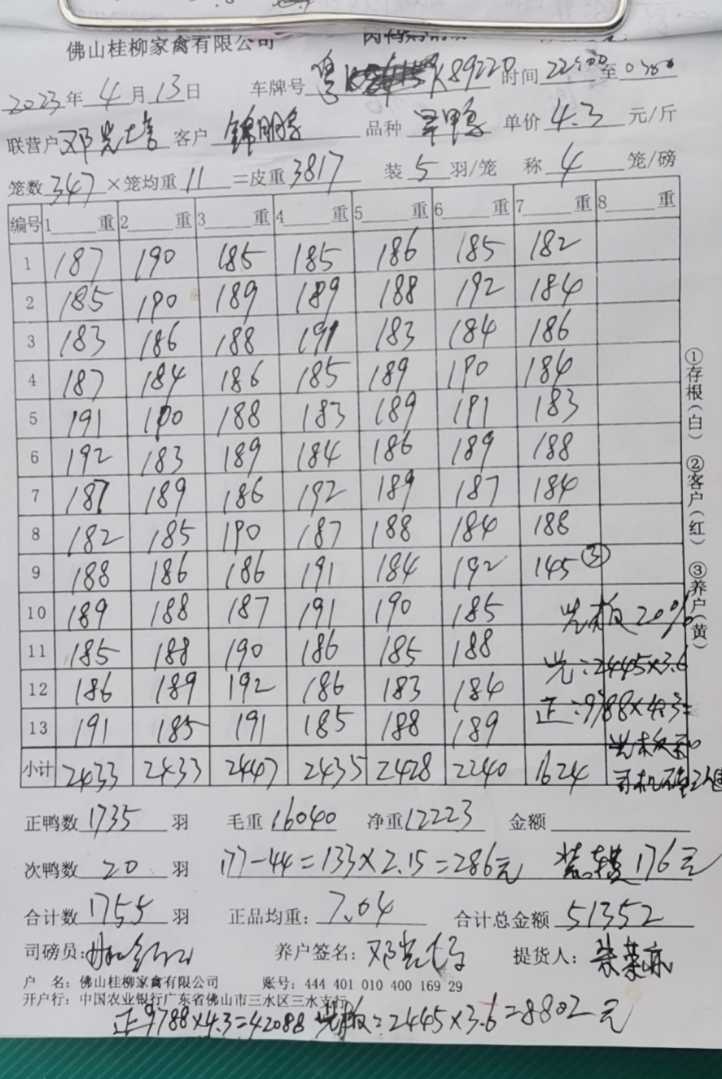 佛山桂柳家禽有限公司
2023年4月13日 车牌号 粤 K89220 时间 22:00 至
联营户 邓光 客户 锦朋 品种 旱鸭 单价 4.3 元/斤
笼数 347 ×笼均重 11 =皮重 3817 装 5 羽/笼 称 4 笼/磅
编号 1 重 2 重 3 重 4 重 5 重 6 重 7 重 8 重
1 187 190 185 185 186 185 182
2 185 190 189 189 188 192 184
3 183 186 188 191 183 184 186
4 187 184 186 185 189 190 184
5 191 190 188 183 189 191 183
6 192 183 189 184 186 189 188
7 187 189 186 192 189 187 184
8 182 185 190 187 188 184 188
9 188 186 186 191 184 192 145 ③
10 189 188 187 191 190 185 光板20%
11 185 188 190 186 185 188 光:2445×3.6
12 186 189 192 186 183 184 正:9788×4.3=
13 191 185 191 185 188 189 光板和
小计 2433 2433 2447 2435 2428 2240 1624 司机
①存根(白) ②客户(红) ③养户(黄)
正鸭数 1735 羽 毛重 16040 净重 12223 金额
次鸭数 20 羽 177-44=133×2.15=286元 176元
合计数 1755 羽 正品均重: 7.04 合计总金额 51352
司磅员: 养户签名: 邓光 提货人:
户 名: 佛山桂柳家禽有限公司 账号: 444 401 010 400 169 29
开户行: 中国农业银行广东省佛山市三水区三水支行
正9788×4.3=42088 光板:2445×3.6=8802元